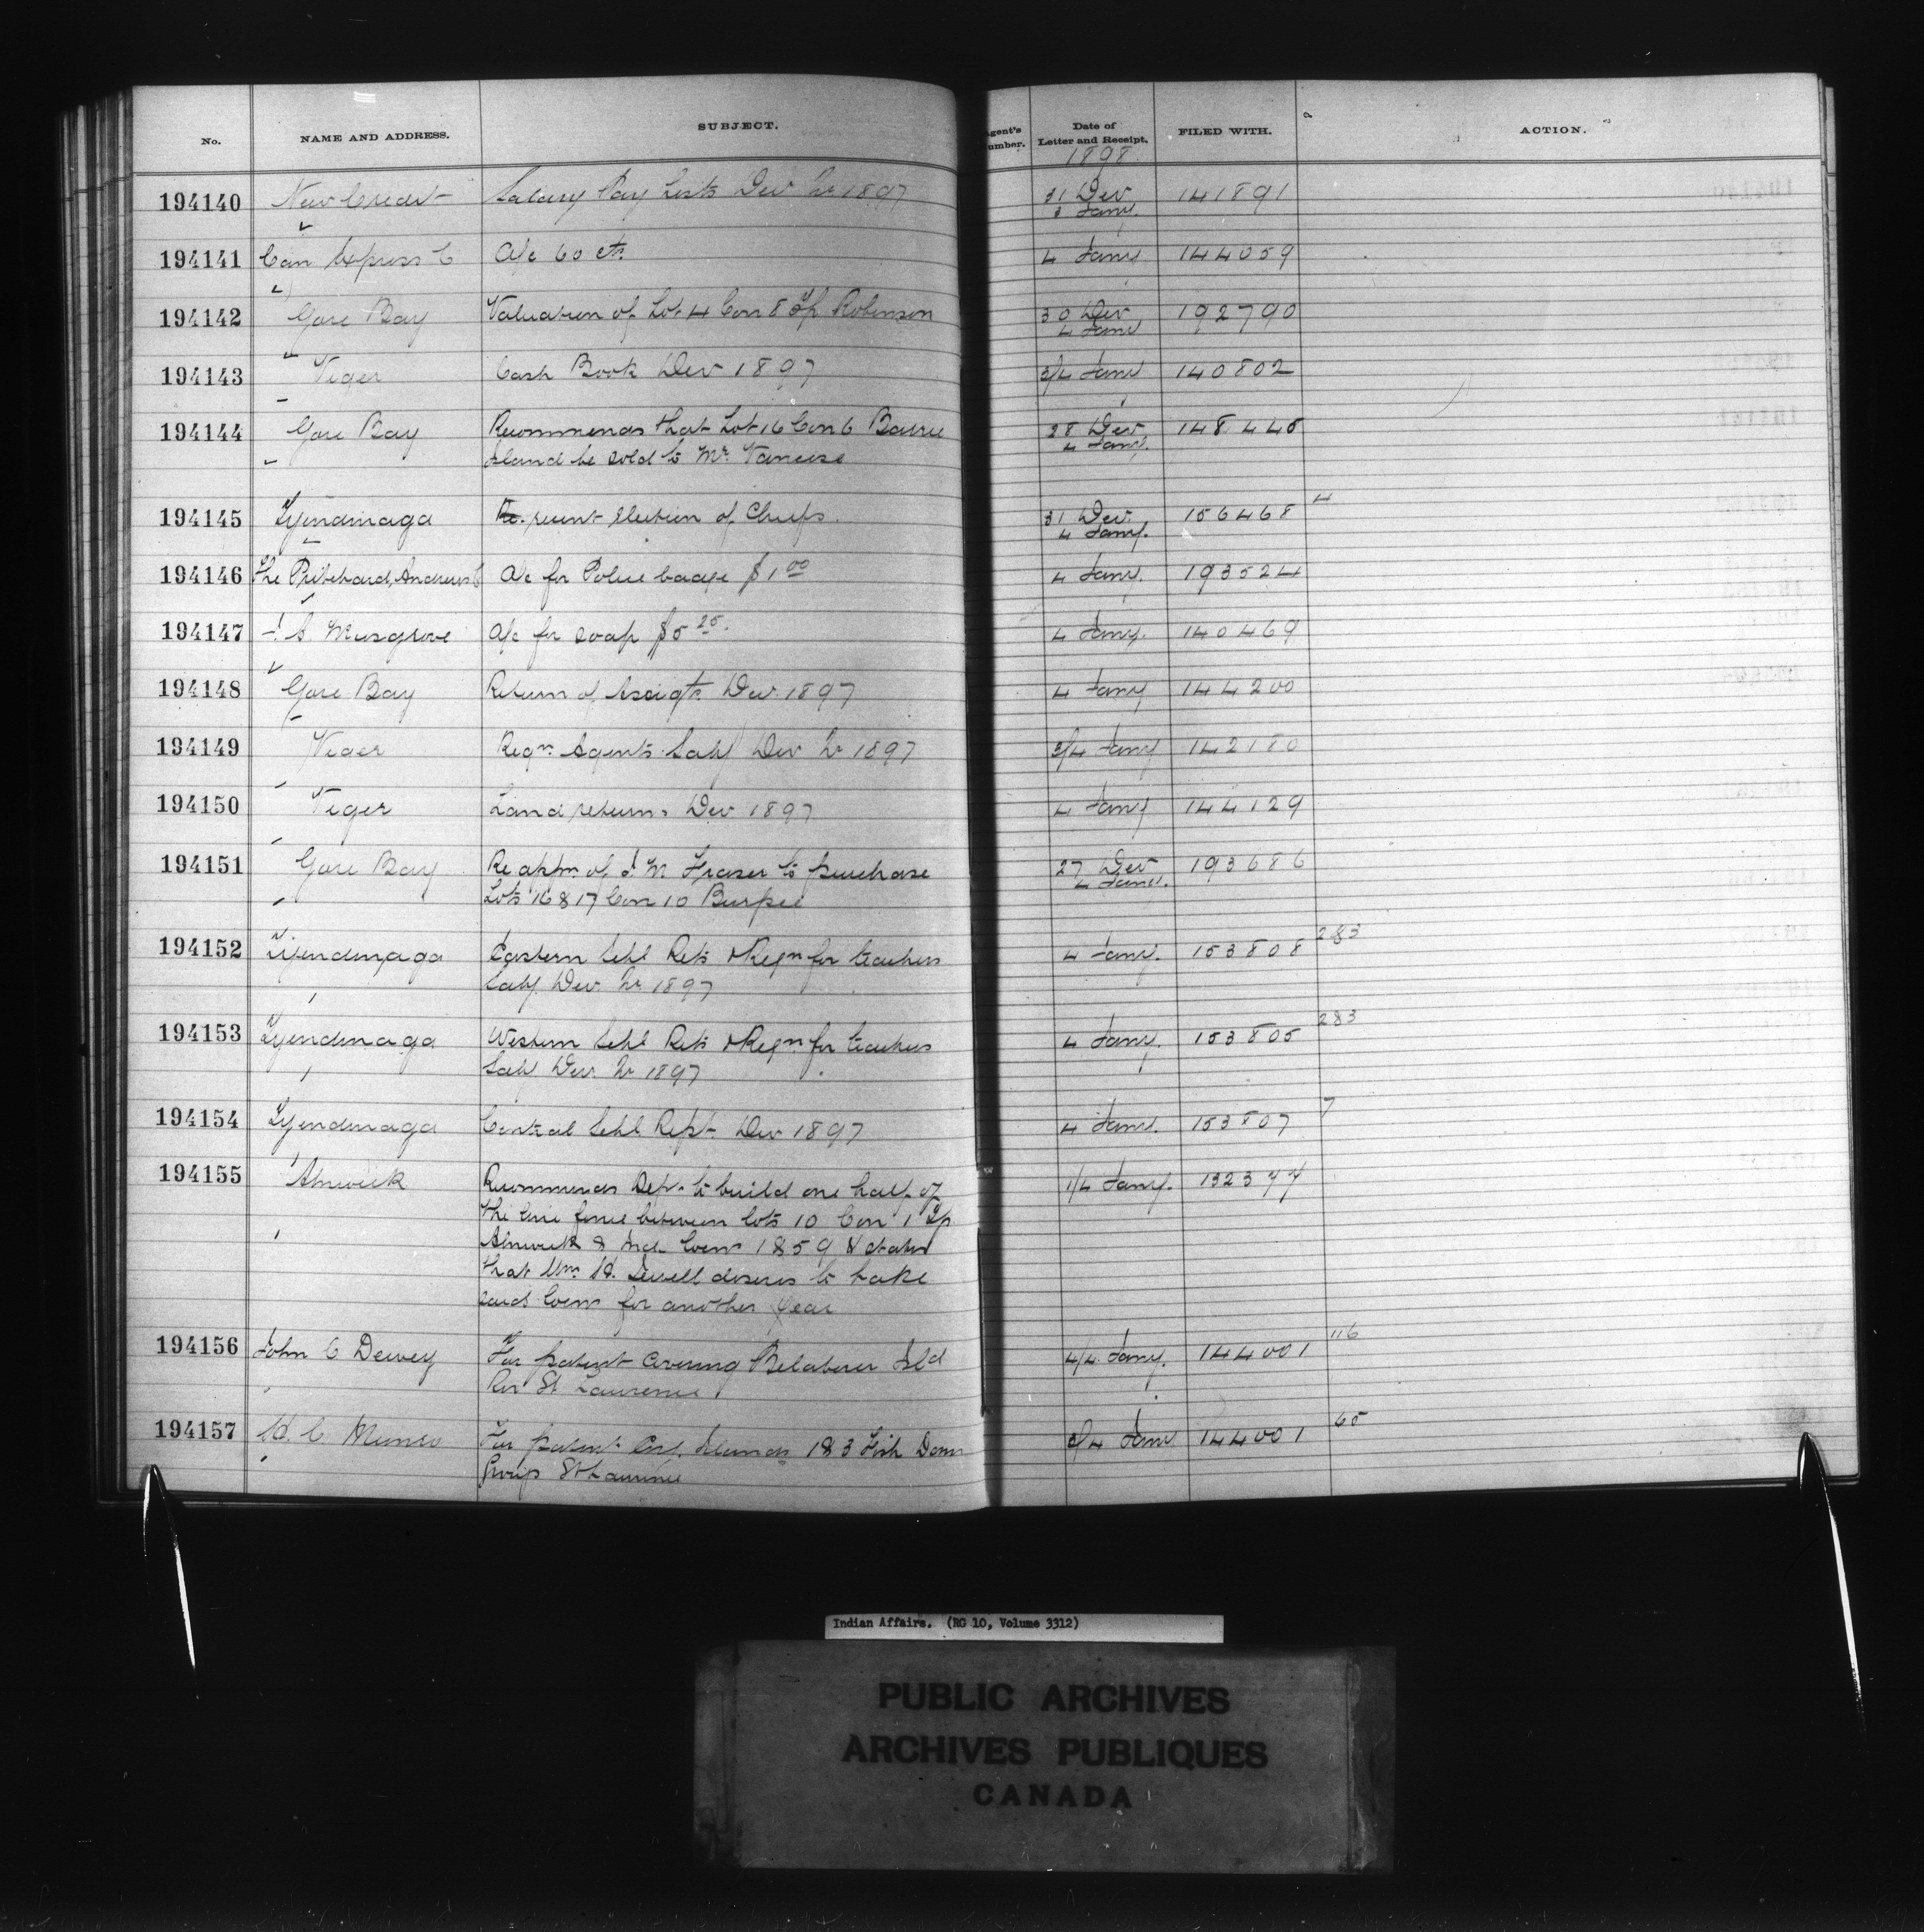 No. NAME AND ADDRESS. SUBJECT. Agent's Number. Date of Letter and Receipt. FILED WITH. ACTION.
1898
194140 New Credit Salary Pay Lists Dec Qr 1897 31 Dec 141891
3 Jany.
194141 Can Express Co A/c 60 cts 4 Jany 144059
194142 Gore Bay Valuation of Lot 4 Con 8 Tp Robinson 30 Dec 192790
4 Jany
194143 Viger Cash Book Dec 1897 3/4 Jany 140802
194144 Gore Bay Recommends that Lot 16 Con 6 Barrie 28 Dec 148445
Island be sold to Mr. Vancise 4 Jany.
194145 Tyendinaga Re. recent election of Chiefs. 31 Dec. 156468 4
4 Jany.
194146 The Pritchard, Andrews Co A/c for Police badge $1 00 4 Jany. 193524
194147 Musgrove A/c for soap $5 25. 4 Jany. 140469
194148 Gore Bay Return of Assigts. Dec. 1897 4 Jany 144200
194149 Viger Reqn. Agents Saly Dec Qr 1897 3/4 Jany 142180
194150 Viger Land returns Dec 1897 4 Jany 144129
194151 Gore Bay Re appn. of J. M Fraser to purchase 27 Dec 193686
Lots 16 & 17 Con 10 Burpee 4 Jany.
194152 Tyendinaga Eastern Schl Rets & Reqn for teachers 4 Jany. 153808 283
Saly. Dec. Qr. 1897
194153 Tyendinaga Western Schl Rets & Reqn for teachers 4 Jany. 153805 283
Saly. Dec. Qr 1897
194154 Tyendinaga Central Schl. Rept. Dec 1897 4 Jany. 153807 7
194155 Alnwick Recommends Dept. to build one half of 1/4 Jany. 132377
the line fence between lots 10 Con 1 Tp
Alnwick & Ind. 1859 & states
that Wm. H. Sewell desires to take
said for another year
194156 John C Dewey For patent covering Belabour Isld 4/4 Jany. 144001 116
Riv St Lawrence
194157 H. C. Munro For patent Islands 1 & 3 Fish Dam 3/4 Jany 144001 65
Group St Lawrence
Indian Affairs. (RG 10, Volume 3312)
PUBLIC ARCHIVES
ARCHIVES PUBLIQUES
CANADA